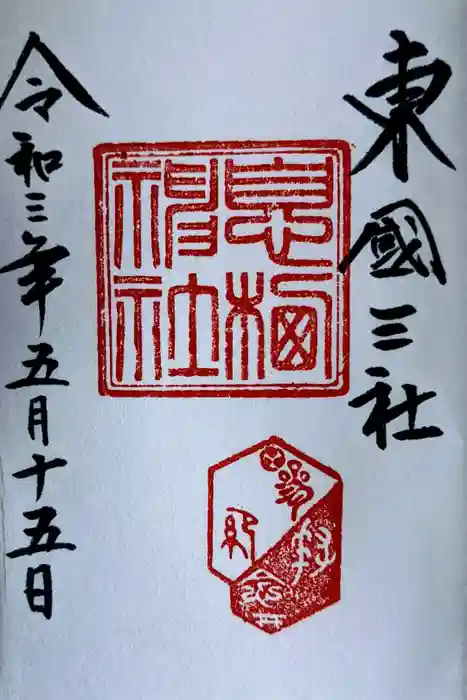 東國三社
息栖神社
令和三年五月十五日